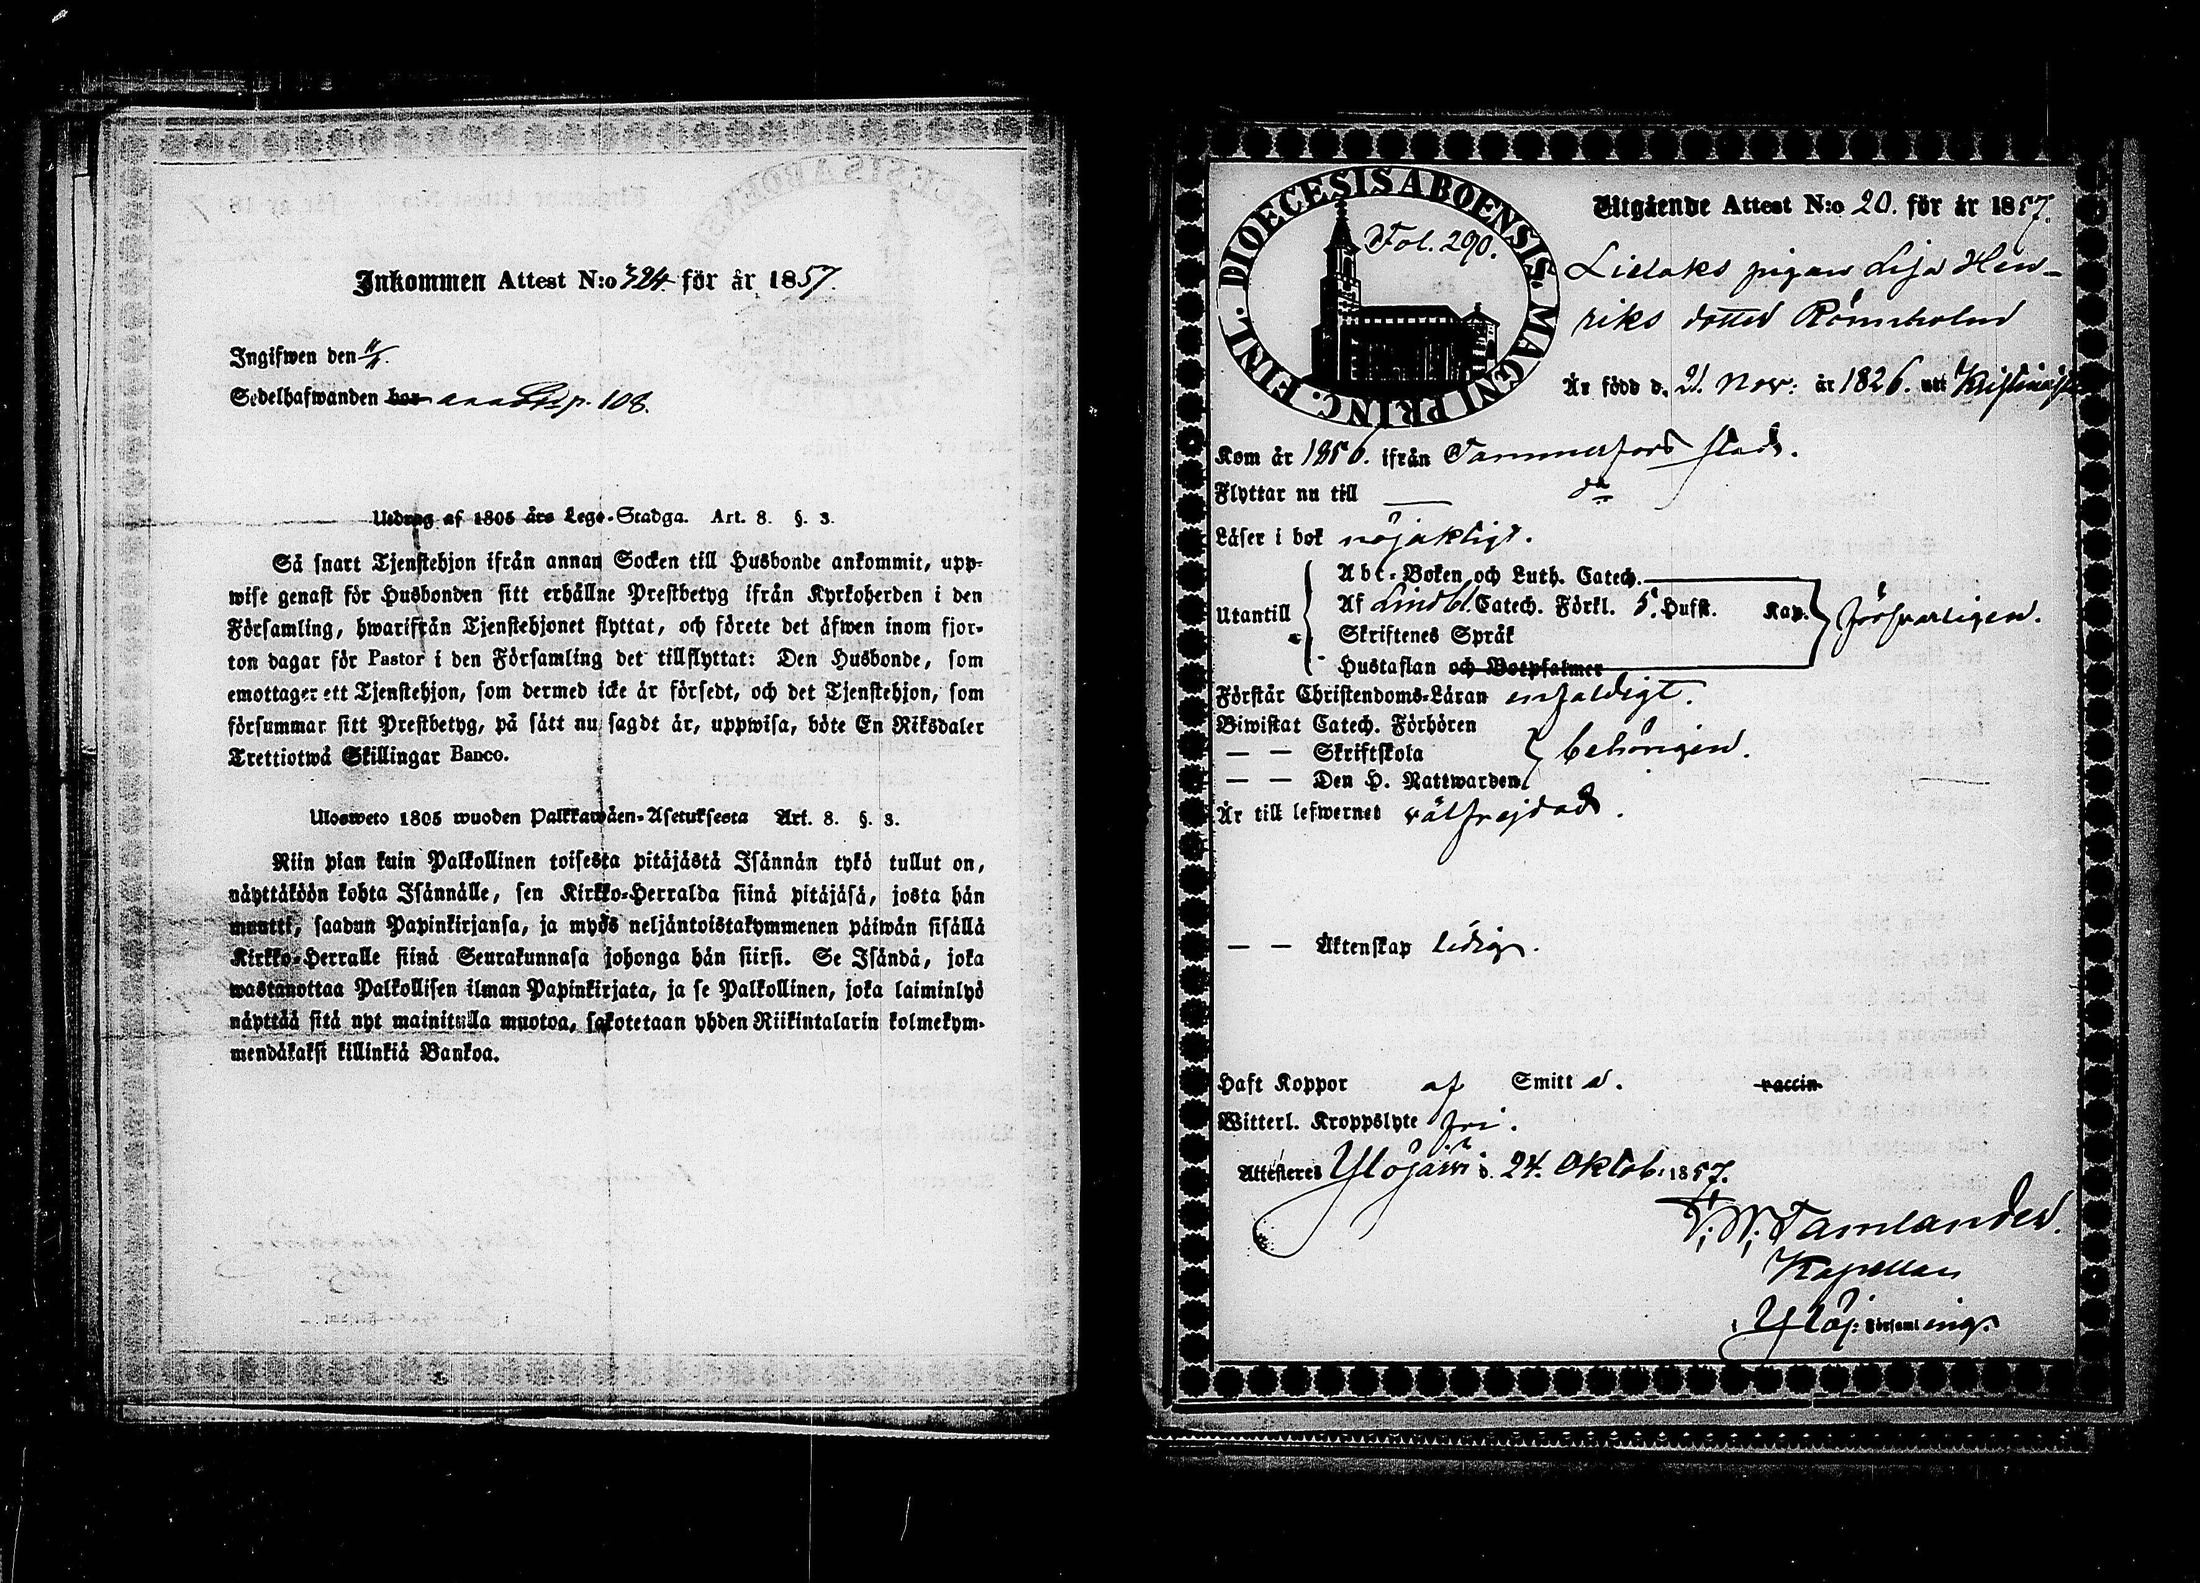 Inkommen Attest N:o 324 för år 1857.
Ingifwen den
Sedelhafwanden bor p. 108.
Utdrag af 1805 års Lego-Stadga. Art. 8. §. 3.
Så snart Tjenstehjon ifrån annan Socken till Husbonde ankommit, upp-
wise genast för Husbonden sitt erhållne Prestbetyg ifrån Kyrkoherden i den
Församling, hwarifrån Tjenstehjonet flyttat, och förete det äfwen inom fjor-
ton dagar för Pastor i den Församling det tillflyttat: Den Husbonde, som
emottager ett Tjenstehjon, som dermed icke är försedt, och det Tjenstehjon, som
försummar sitt Prestbetyg, på sätt nu sagdt är, uppwisa, böte En Riksdaler
Trettiotwå Skillingar Banco.
Ulosweto 1805 wuoden Palkkawäen-Asetuksesta Art. 8. §. 3.
Niin pian kuin Palkollinen toisesta pitäjästä Isännän tykö tullut on,
näyttäköön kohta Isännälle, sen Kirkko-Herralda siinä pitäjäsä, josta hän
muutti, saadun Papinkirjansa, ja myös neljäntoistakymmenen päiwän sisällä
Kirkko-Herralle siinä Seurakunnasa johonga hän siirsi. Se Isändä, joka
wastanottaa Palkollisen ilman Papinkirjata, ja se Palkollinen, joka laiminlyö
näyttää sitä nyt mainitulla muotoa, sakotetaan yhden Riikintalarin kolmekym-
mendäkaksi killinkiä Bankoa.
DIOECESIS ABOENSIS. MAGNI PRINC. FINL.
Fol. 290.
Utgående Attest N:o 20. för år 1857.
pigan Lisa Hen-
riks dotter Römholm
Är född d. 21. Nov: år 1826. uti
Kom år 1856. ifrån Tammerfors stad.
Flyttar nu till — da
Läser i bok nöjaktigt.
Utantill
Abc-Boken och Luth. Catech.
Af Lindbl. Catech. Förkl. 5. Hufst. Kap.
Skriftenes Språk
Hustaflan och Botpsalmer
försvarligen.
Förstår Christendoms-Läran enfaldigt.
Biwistat Catech. Förhören
— — Skriftskola
— — Den H. Nattwarden
behörigen.
Är till lefwernet välfrejdad.
— — Äktenskap ledig.
Haft Koppor af Smitt a. vaccin
Witterl. Kroppslyte fri.
Attesteres Ylöjärvi d. 24. Oktob. 1857.
Tamlander.
Kapellan
Ylöj: Församling.